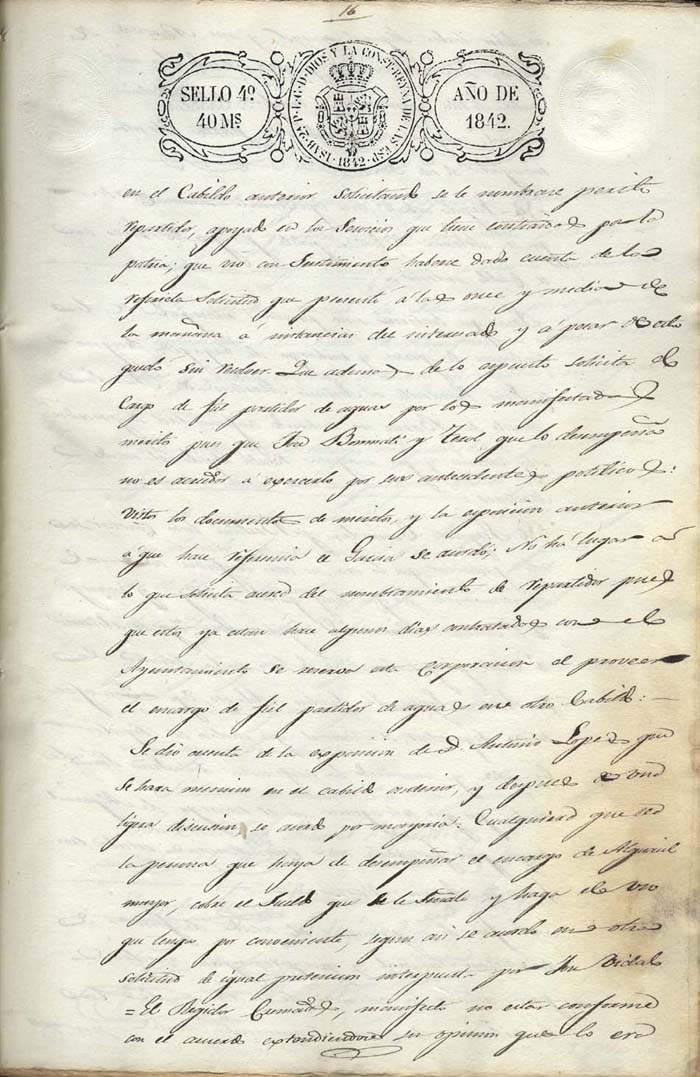 16
SELLO 4º
40 Ms
ISAB. 2ª P. L. G. D. DIOS Y LA CONST. REYNA DE LAS ESP.
1842
AÑO DE
1842.
en el Cabildo anterior solicitando se le nombrase perito
repartidor, apoyado en los Servicios que tiene contraidos por la
patria; que vió con Sentimiento haberse dado cuenta de la
referida Solicitud que presentó á las once y media de
la mañana á instancias del interesado y á pesar de ello
quedó sin resolver. Que ademas de lo espuesto solicita el
Cargo de fiel partidor de aguas por los manifestados
meritos pues que José y que lo desempeña
no es acreedor á exercerlo por sus antecedentes politicos:
Vistos los documentos de meritos, y la esposicion anterior
á que hace referencia el Garcia se acordó; No há lugar á
lo que solicita acerca del nombramiento de repartidor pues
que estos ya estan hace algunos dias contratados con el
Ayuntamiento se reserva esta Corporacion el proveer
el encargo de fiel partidor de aguas en otro Cabildo:—
Se dió cuenta de la exposicion de D. Antonio Lopez que
se hara mencion en el cabildo anterior, y despues de una
ligera discusion, se acordó por mayoria: Cualquiera que sea
la persona que haya de desempeñar el encargo de Alguacil
mayor, cobre el Sueldo que se le Señale y haga el uso
que tenga por conveniente, segun asi se acordo en otra
solicitud de igual pretencion interpuesta por José Vidal
= El Regidor manifestó no estar conforme
con el acuerdo extendiendose su opinion que lo era